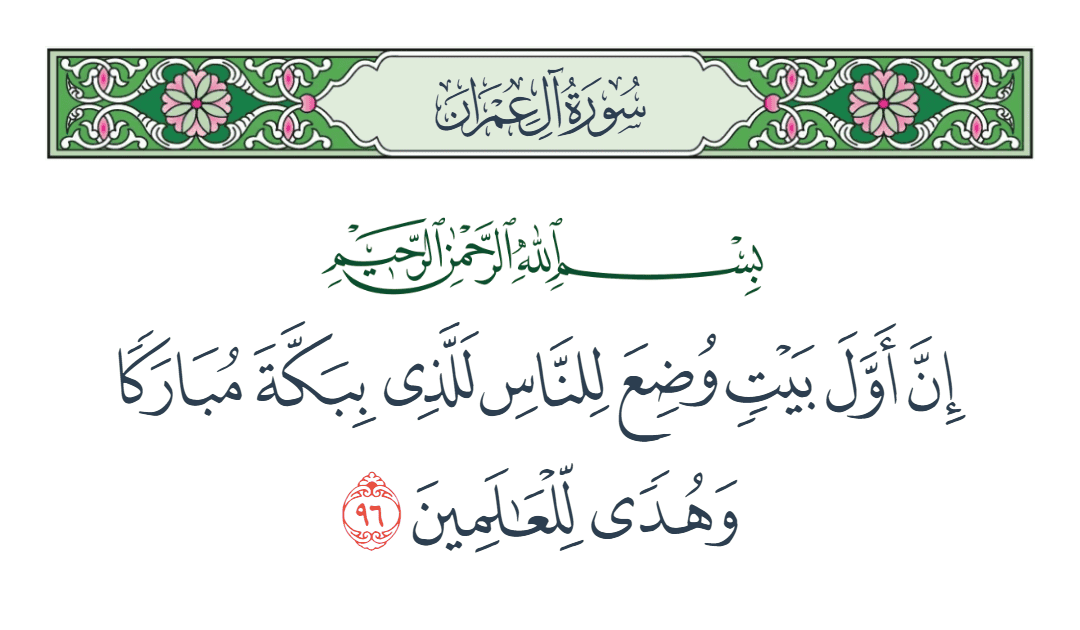 سُورَةُ آلِ عِمْرَانَ
بِسْمِ ٱللَّهِ ٱلرَّحْمَٰنِ ٱلرَّحِيمِ
إِنَّ أَوَّلَ بَيْتٍ وُضِعَ لِلنَّاسِ لَلَّذِى بِبَكَّةَ مُبَارَكًا
وَهُدًى لِّلْعَٰلَمِينَ ٩٦